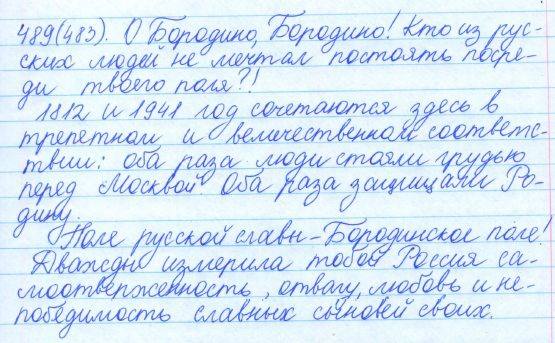 489(483). О Бородино, Бородино! Кто из рус-
ских людей не мечтал постоять посре-
ди твоего поля?!
1812 и 1941 год сочетаются здесь в
трепетном и величественном соответс-
твии: оба раза люди стояли грудью
перед Москвой. Оба раза защищали Ро-
дину.
Поле русской славы – Бородинское поле!
Дважды измерила тобой Россия са-
моотверженность, отвагу, любовь и не-
победимость славных сыновей своих.